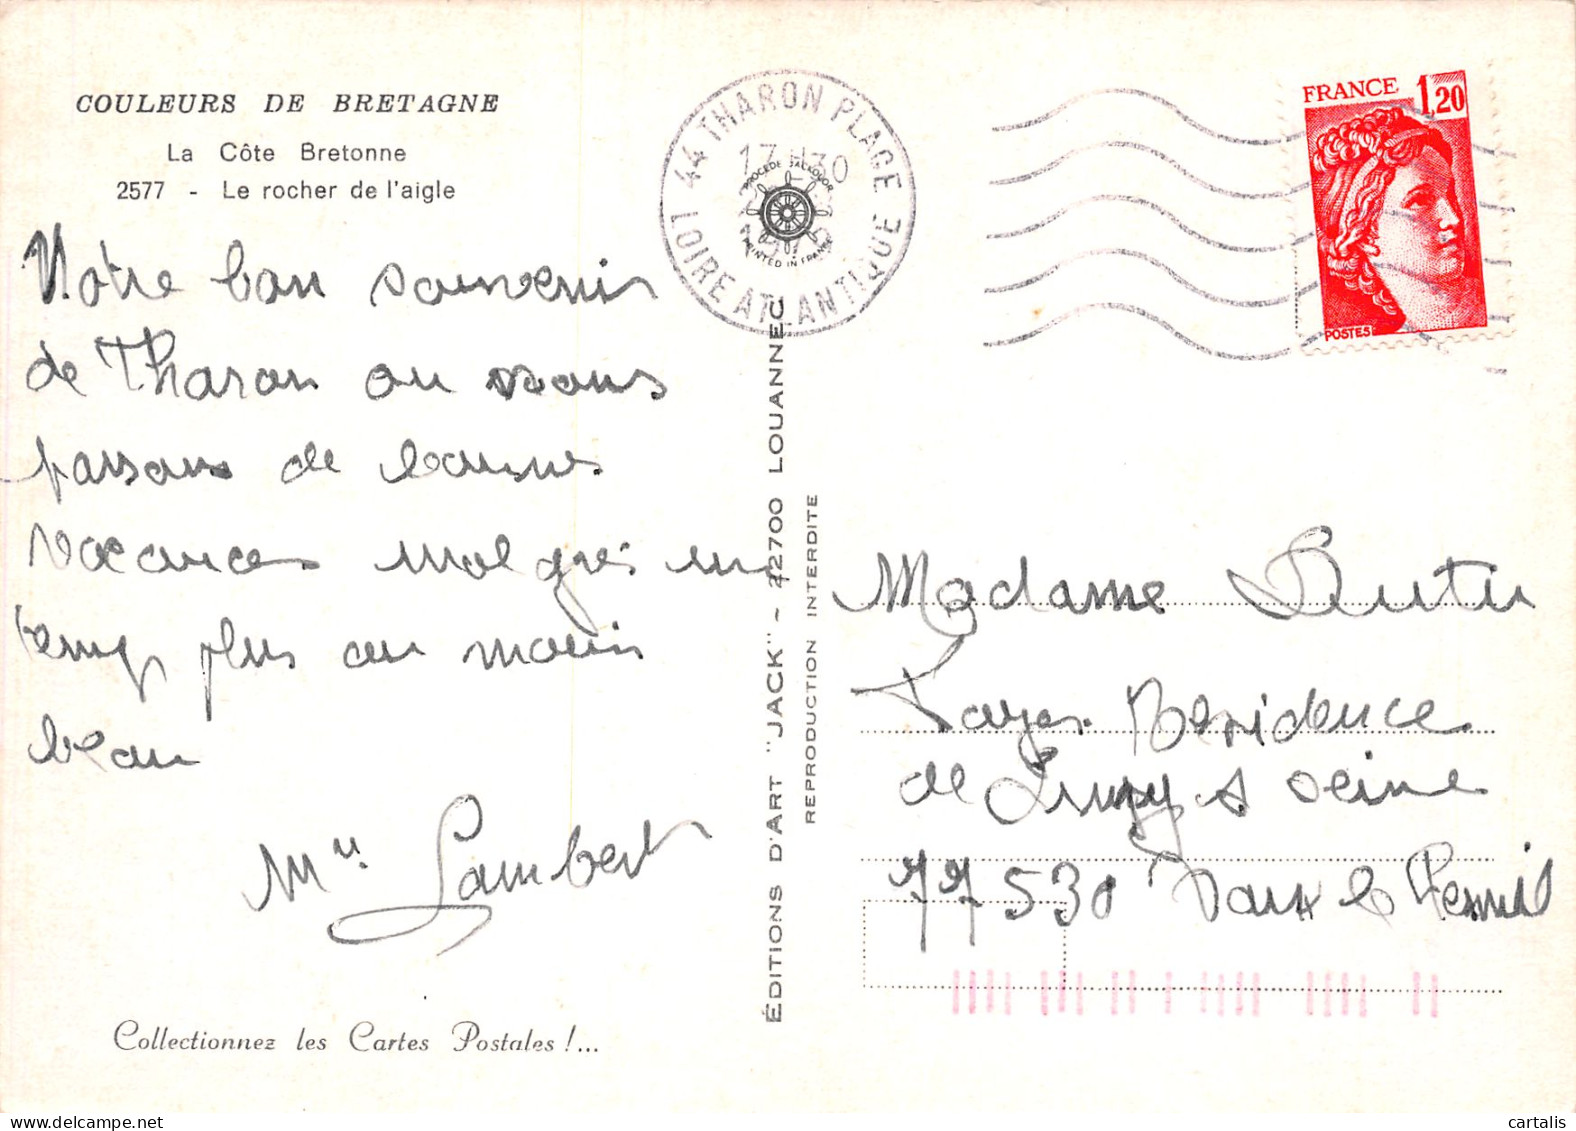 COULEURS DE BRETAGNE
La Côte Bretonne
2577 - Le rocher de l'aigle
Notre bon souvenir
de Tharon ou nous
passons de bonnes
vacances malgrés un
temps plus ou moins
beau
Mme Lambert
Collectionnez les Cartes Postales !...
44 THARON PLAGE
17H30
LOIRE ATLANTIQUE
PROCÉDÉ JACKOLOR
PRINTED IN FRANCE
FRANCE 1,20
POSTES
ÉDITIONS D'ART "JACK" - 22700 LOUANNEC
REPRODUCTION INTERDITE
Madame
Résidence
de Luzy s seine
77530 Vaux le Penil
cartalis